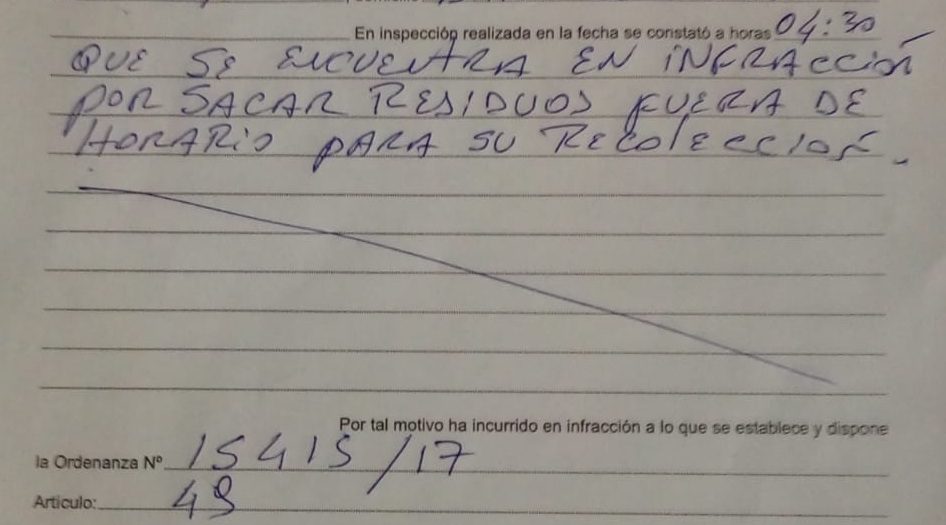 En inspección realizada en la fecha se constató a horas 04:30
QUE SE ENCUENTRA EN INFRACCIÓN
POR SACAR RESIDUOS FUERA DE
HORARIO PARA SU RECOLECCIÓN.
Por tal motivo ha incurrido en infracción a lo que se establece y dispone
la Ordenanza Nº 15415/17
Artículo: 49